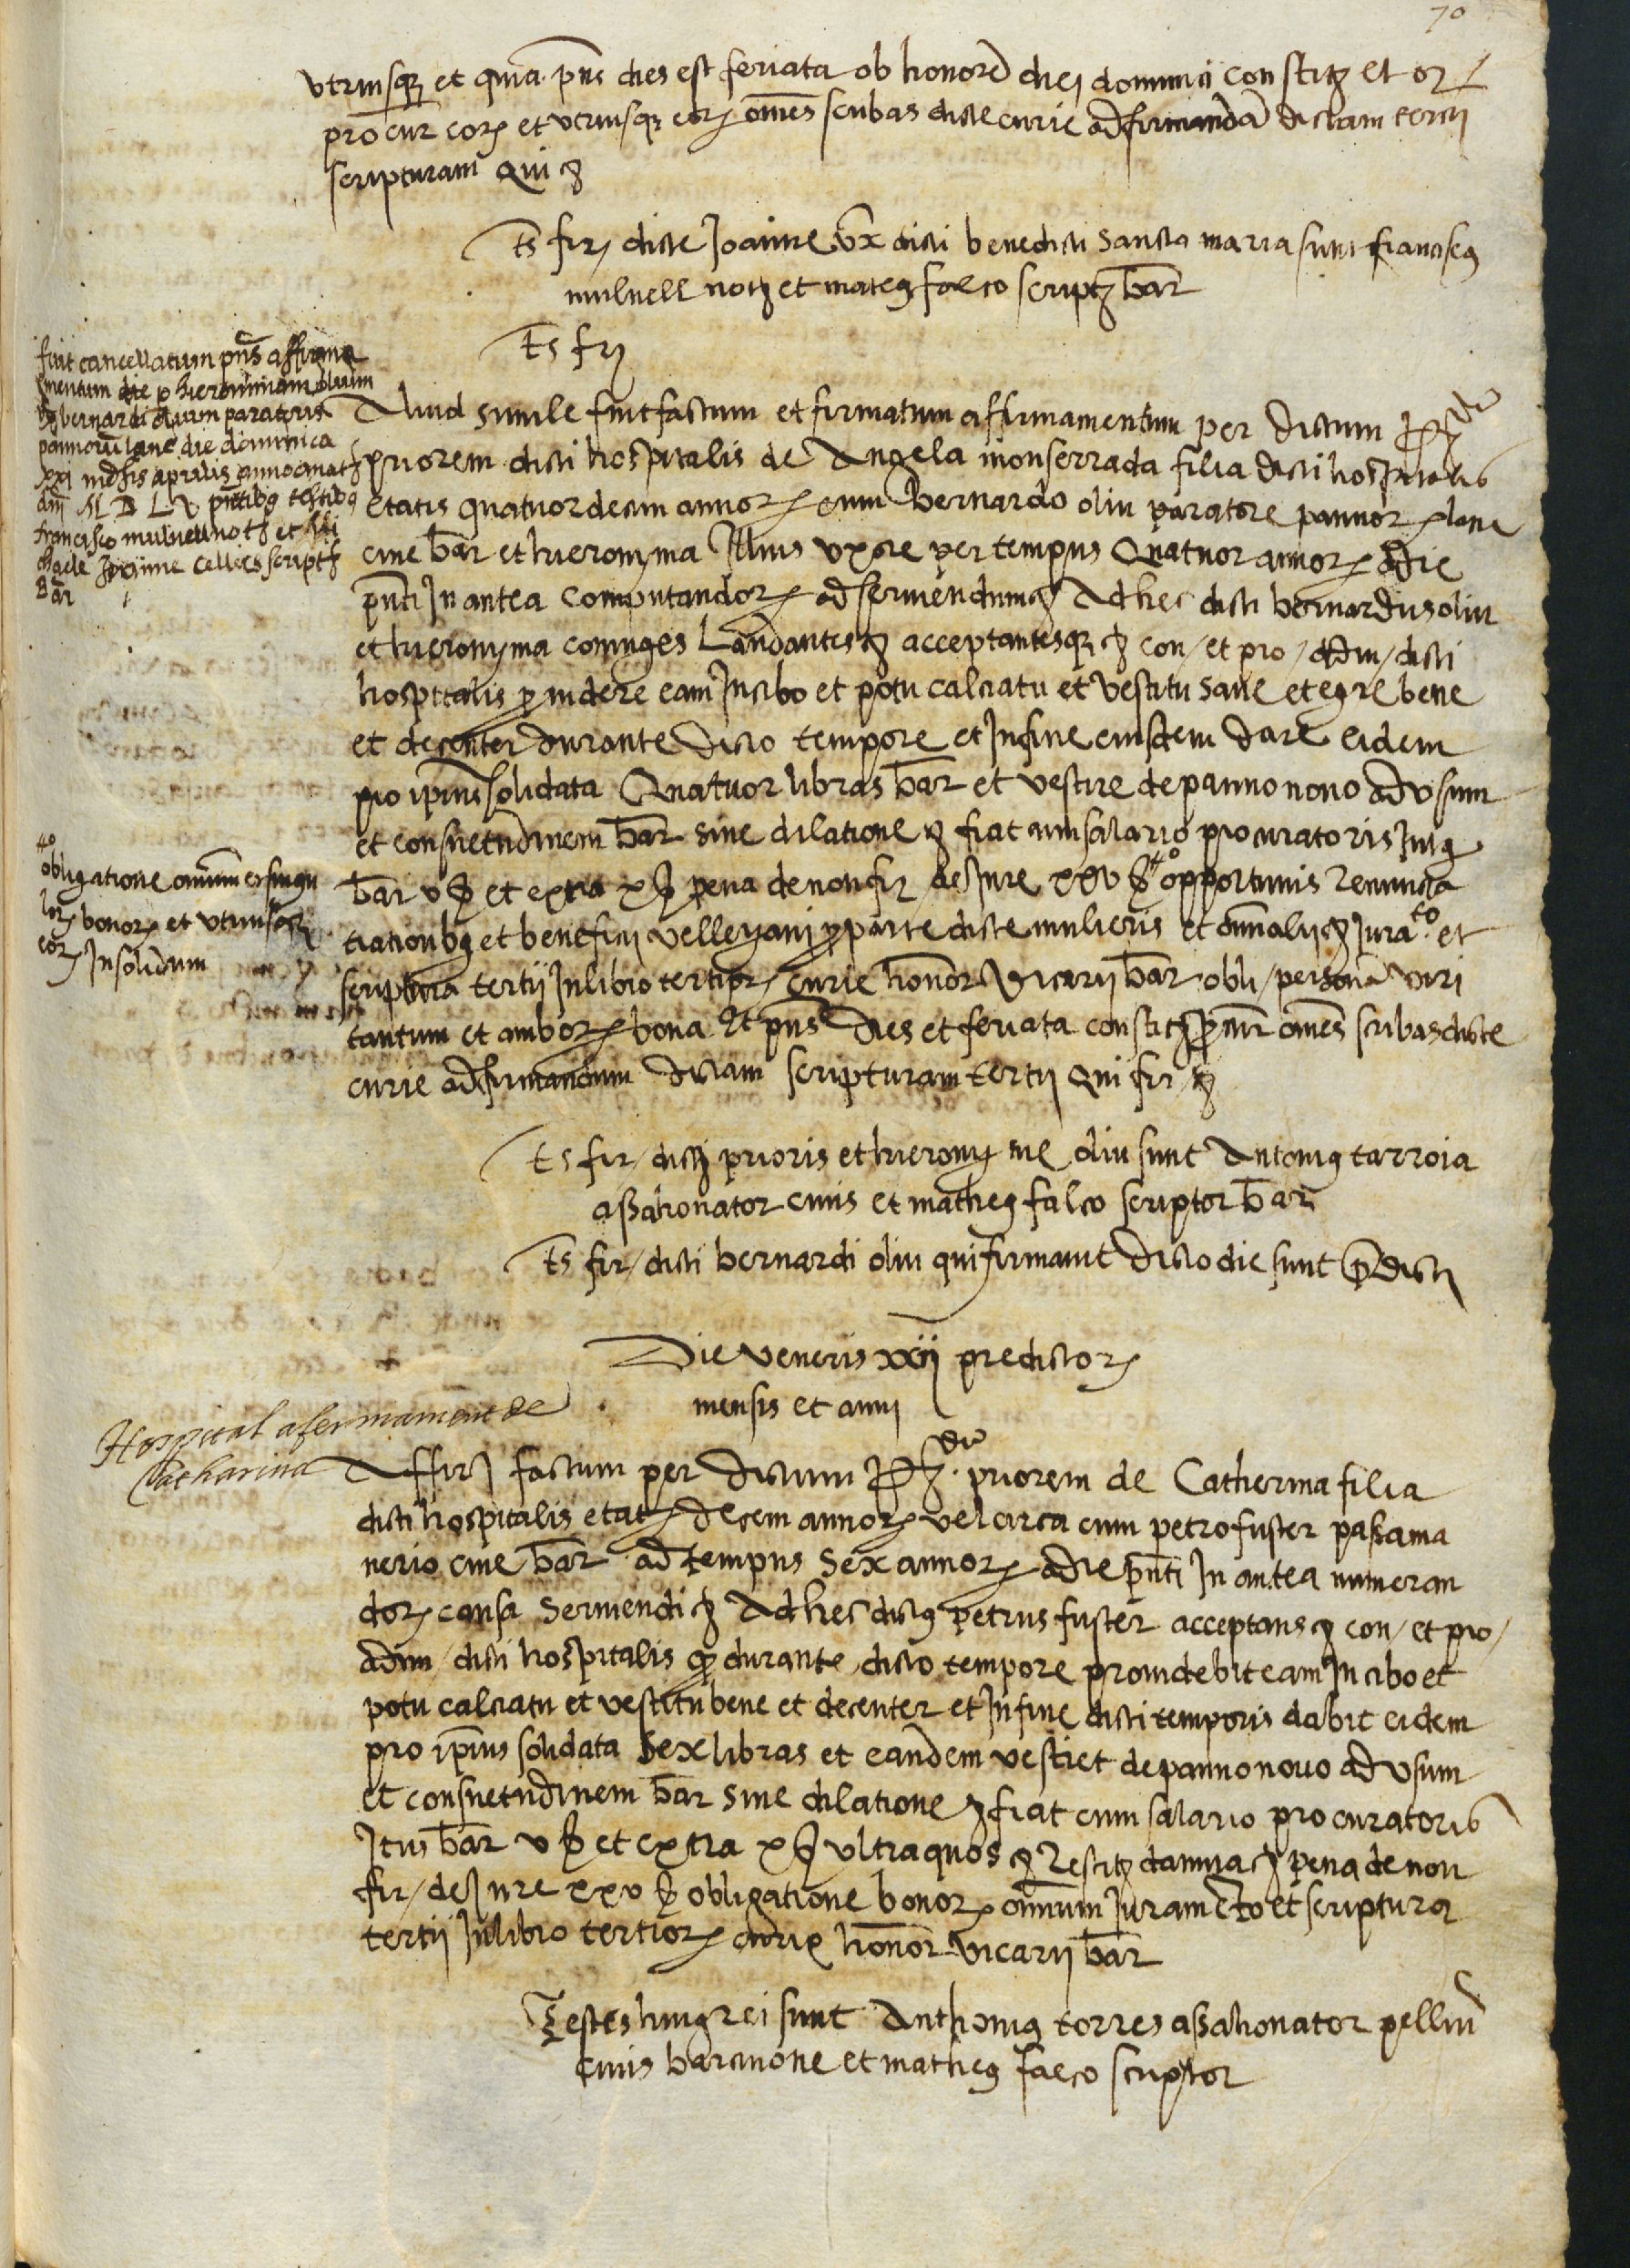 70
utriusq3 et quia pns dies est feriata ob honorē diei dominici constitȝ et or
procur eorȝ et utriusq3 eorȝ omēs scribas dicte curie ad firmandā dictam tercii
scripturam Qui ȝ
Ts firȝ dicte Joanne ux dicti benedicti sancta maria sunt francisc9
mulnell notȝ et mate9 falco scriptȝ bar̄
Ts frȝ
fuit cancellatum pn̄s affirma
mentum die p hieronimam oliuim
bernardi oliuim paratoris
pannorū lane die dominica
xxi mēsis aprilis anno a natȝ
dn̄i M D L V pn̄tibȝ testibȝ
francisco mulnell notȝ et Mi
chaele Joanne Cellers scriptȝ
Bar̄
Aliud simile fuit factum et firmatum affirmamentum per dictum
priorem dicti hospitalis de Angela monserrada filia dicti hospitalis
etatis quatuordecim annorȝ cum Bernardo oliu paratore pannorȝ lane
ciue bar̄ et hieronyma Illius uxore per tempus Quatuor annorȝ a die
pn̄ti In antea computandorȝ ad seruiendumȝ Ad hec dicti bernardus oliu
et hieronyma coniuges Laudantesȝ acceptantesq3 ȝ con/ et pro/ adm/ dicti
hospitalis prouidere eam In cibo et potu calciatu et vestitu sane et egre bene
et decenter durante dicto tempore et In fine eiusdem dare eidem
pro ipius solidata Quatuor libras bar̄ et vestire de panno nouo ad usum
et consuetudinem bar̄ sine dilatione ȝ fiat cum salario procuratoris Intȝ
bar̄ v ȝ et extra x ȝ pena de non fir de Jure xxv ȝ opportunis Renuncia
to
obligatione omnium et singu
lorȝ bonorȝ et utriusq3
eorȝ Insolidum
tiationibȝ et beneficii velleyani pro parte dicte mulieris et omn̄ alij ȝ Jura to et
scriptura tertii In libro tertiorȝ curie honor Vicarii bar̄ obli/ persona viri
tantum et amborȝ bona Et pns dies et feriata constitȝ procur omēs scribas dicte
curie ad firmandum dictam scripturam tertii Qui fir ȝ
Ts fir/ dictȝ prioris et hieronyme oliu sunt Antoni9 tarroia
assahonator ciuis et mathe9 falco scriptor bar̄
Ts fir/ dicti bernardi oliu qui firmauit dicto die sunt p̄dicti
Die Veneris xxii predictorȝ
mensis et anni
Hospital afermament de
Catharina
Affirȝ factum per dictum priorem de Catherina filia
dicti hospitalis etatȝ decem annorȝ vel circa cum petro fuster passama
nerio ciue bar̄ ad tempus Sex annorȝ a die pn̄ti In antea numeran
dorȝ causa Seruiendi ȝ Ad hec dict9 petrus fuster acceptans ȝ con/ et pro/
adm/ dicti hospitalis q durante dicto tempore prouidebit eam In cibo et
potu calciatu et vestitu bene et decenter et In fine dicti temporis dabit eidem
pro ipius solidata Sex libras et eandem vestiet de panno nouo ad usum
et consuetudinem bar̄ sine dilatione ȝ fiat cum salario procuratoris
Itus bar̄ v ȝ et extra x ȝ ultra quos ȝ Restitȝ damna ȝ pena de non
fir/ de Jure xxv ȝ obligatione bonorȝ omnium Juramēto et scriptura
tertii In libro tertiorȝ curie honor Vicarii bar̄
Testes hui9 rei sunt Anthoni9 torres assahonator pelliū
ciuis barcinone et mathe9 falco scriptor